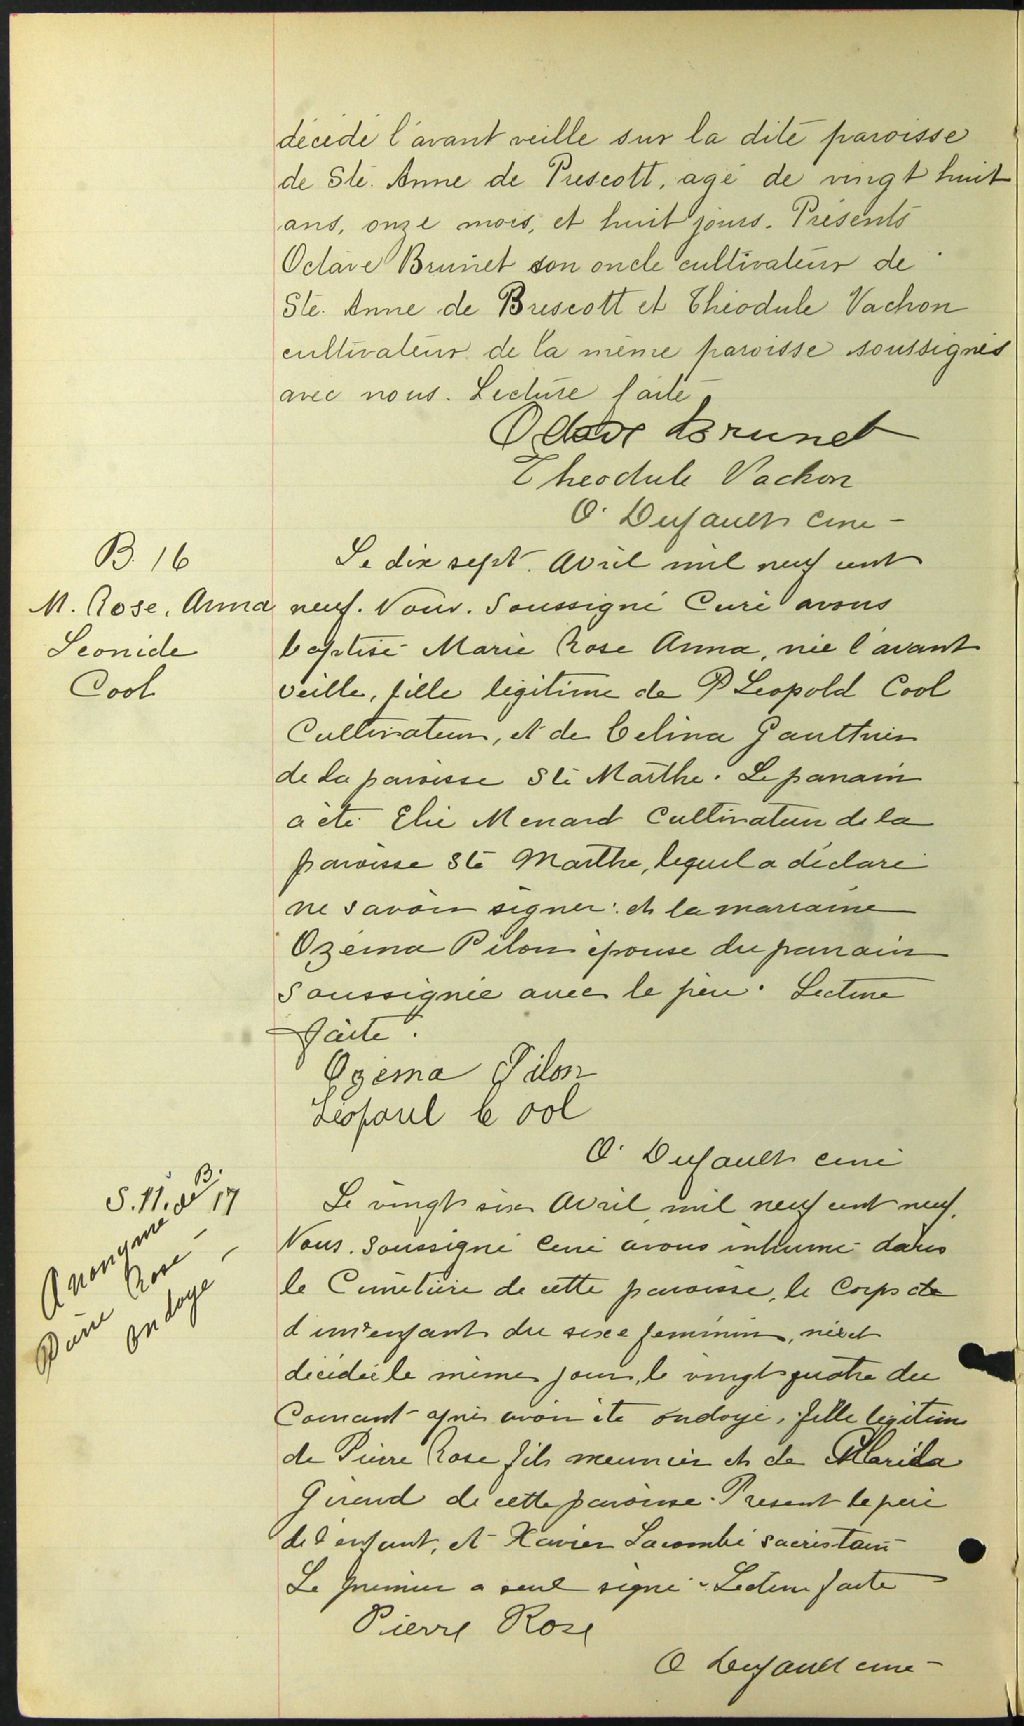 décédé l'avant veille sur la dite paroisse
de Ste. Anne de Prescott, agé de vingt huit
ans, onze mois, et huit jours. Présents
Octave Brunet son oncle cultivateur de
Ste. Anne de Prescott et Théodule Vachon
cultivateur de la même paroisse soussignés
avec nous. Lecture faite
Octave Brunet
Theodule Vachon
O. Dufault curé
B. 16
M. Rose, Anna
Leonide
Cool
Le dix sept Avril mil neuf cent
neuf. Nous. Soussigné Curé avons
baptisé Marie Rose Anna, née l'avant
veille, fille légitime de P Léopold Cool
Cultivateur, et de Celina Gauthier
de la paroisse Ste Marthe. Le parrain
a été Elie Menard Cultivateur de la
paroisse Ste Marthe, lequel a déclaré
ne savoir signer: et la marraine
Ozéma Pilon épouse du parrain
soussignée avec le père. Lecture
faite.
Ozéma Pilon
Léopaul Cool
O. Dufault curé
S. 11. B. 17
Anonyme de
Pierre Rose
ondoyé
Le vingt six Avril mil neuf cent neuf.
Nous. Soussigné Curé avons inhumé dans
le Cimetière de cette paroisse, le corps
d'un enfant du sexe feminin, née et
décidée le même jour, le vingt quatre du
Courant qui avoir été ondoyé, fille légitime
de Pierre Rose fils meunier et de Marida
Girard de cette paroisse. Present le père
de l'enfant, et Xavier Lacombe sacristain
Le premier a seul signé. Lecture faite
Pierre Rose
O Dufault curé